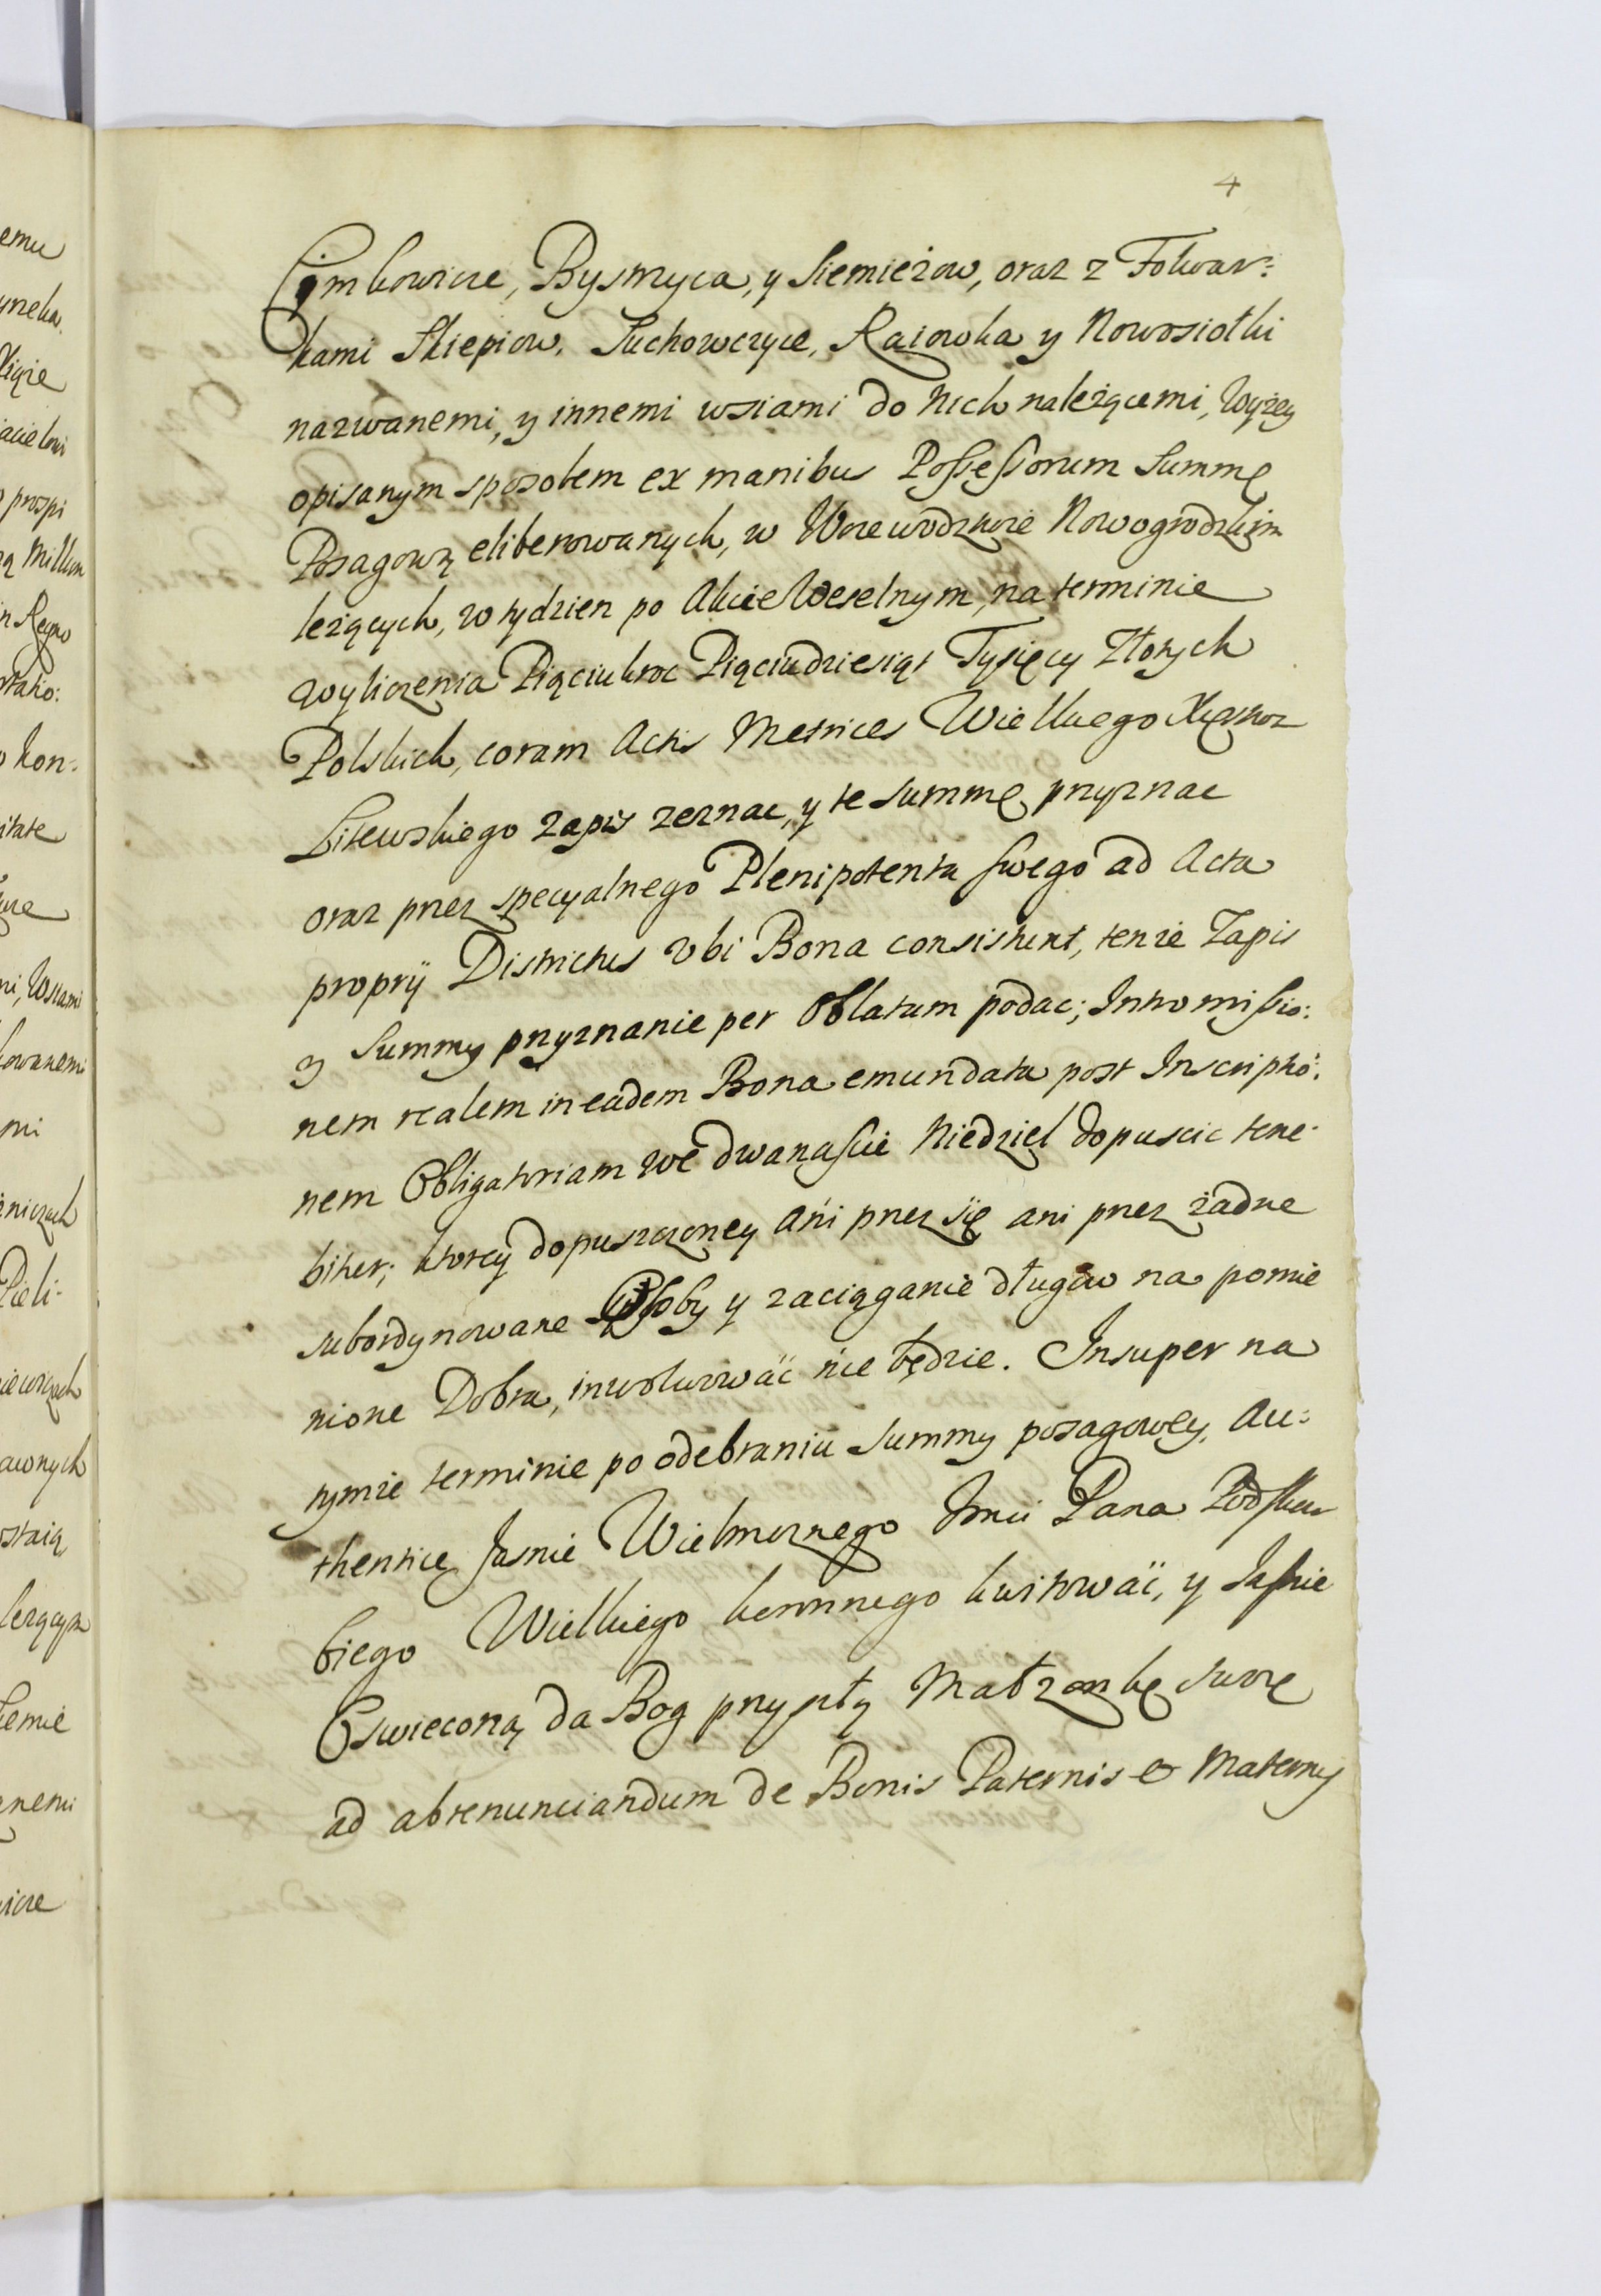 4
Cimkowicze, Bystrzyca, y Siemieżow, oraz z Folwar:
kami Skiepiow, Suchowczyce, Raiowka y Nowosiołki
nazwanemi, y innemi wsiami do nich należącemi, wyżey
opisanym sposobem ex manibus Possessorum Summę
Posagową eliberowanych, w Woiewodztwie Nowogrodzkim
leżących, w tydzien po Akcie Weselnym, na terminie
wyliczenia Pięciukroc Pięciudziesiąt Tysięcy Złotych
Polskich, coram Actis Metrices Wielkiego Xięstwa
Litewskiego zapis zeznac, y te summę przyznac
oraz przez specyalnego Plenipotenta swego ad Acta
proprÿ Districtus vbi Bona consistent, tenze Zapis
y Summy przyznanie per Oblatum podac; Intromissio:
nem realem in eadem Bona emundata post Inscriptio:
nem Obligatoriam we dwanascie Niedziel dopuscic tene:
bitur; ktorey dopuszczoney ani przez się ani przez żadne
subordynowane Osoby y zaciąganie długow na pomie
nione Dobra, inwolwowac nie będzie. Insuper na
tymze terminie po odebraniu Summy posagowey, Au:
thentice Jasnie Wielmoznego Jmci Pana Podskar
biego Wielkiego koronnego kwitowac, y Jasnie
Oswieconą da Bog przyszłą Małzonkę swoię
ad abrenunciandum de Bonis Paternis & Maternis
emu
prospi
Millon
in Regno
kon:
itate
mi
Pieli:
leżącym